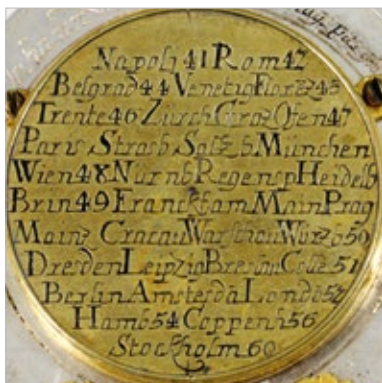 Napoli 41 Rom 42
Belgrad 44 Venetig Florez 45
Trente 46 Zürch Graz Ofen 47
Paris Strasb Saltzb München
Wien 48 Nürnb Regensp Heidelb
Brin 49 Franckf am Main Prag
Mainz Cracau Warschau Würzb 50
Dresden Leipzig Breslau Cöln 51
Berlin Amsterda Lond 52
Hamb 54 Coppenh 56
Stockholm 60